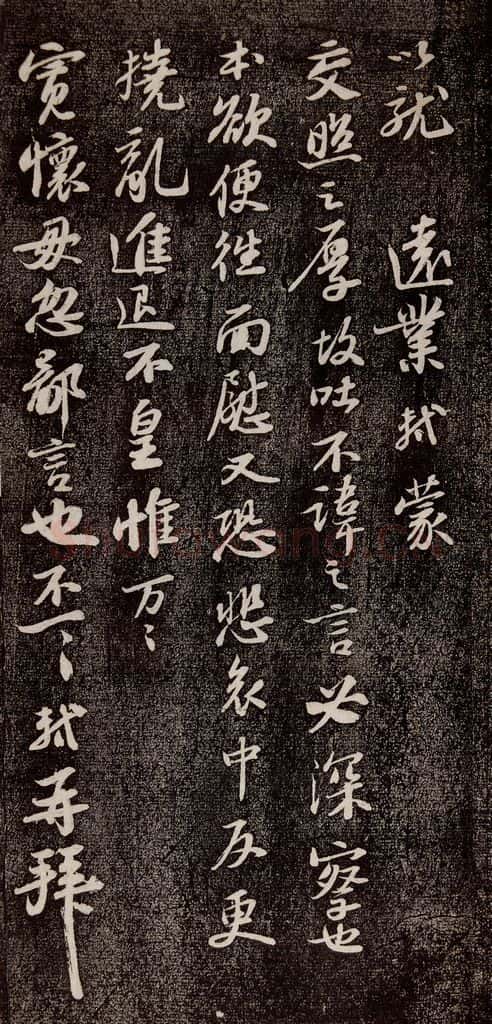 以就 遠業軾蒙
交照之厚故吐不諱之言必深察也
本欲便往面慰又恐悲哀中反更
撓亂進退不皇惟万〻
寛懷毋忽鄙言也不一〻軾再拜